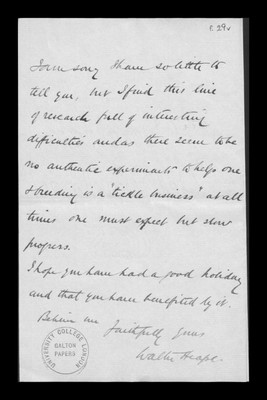 f. 29v
I am sorry I have so little to
tell you, but I find this line
of research full of interesting
difficulties and as there seem to be
no authentic experiments to help one
& breeding is a "tickle business" at all
times one must expect but slow
progress.
I hope you have had a good holiday
and that you have benefited by it.
Believe me
Faithfully yours
Walter Heape.
UNIVERSITY COLLEGE LONDON
GALTON
PAPERS